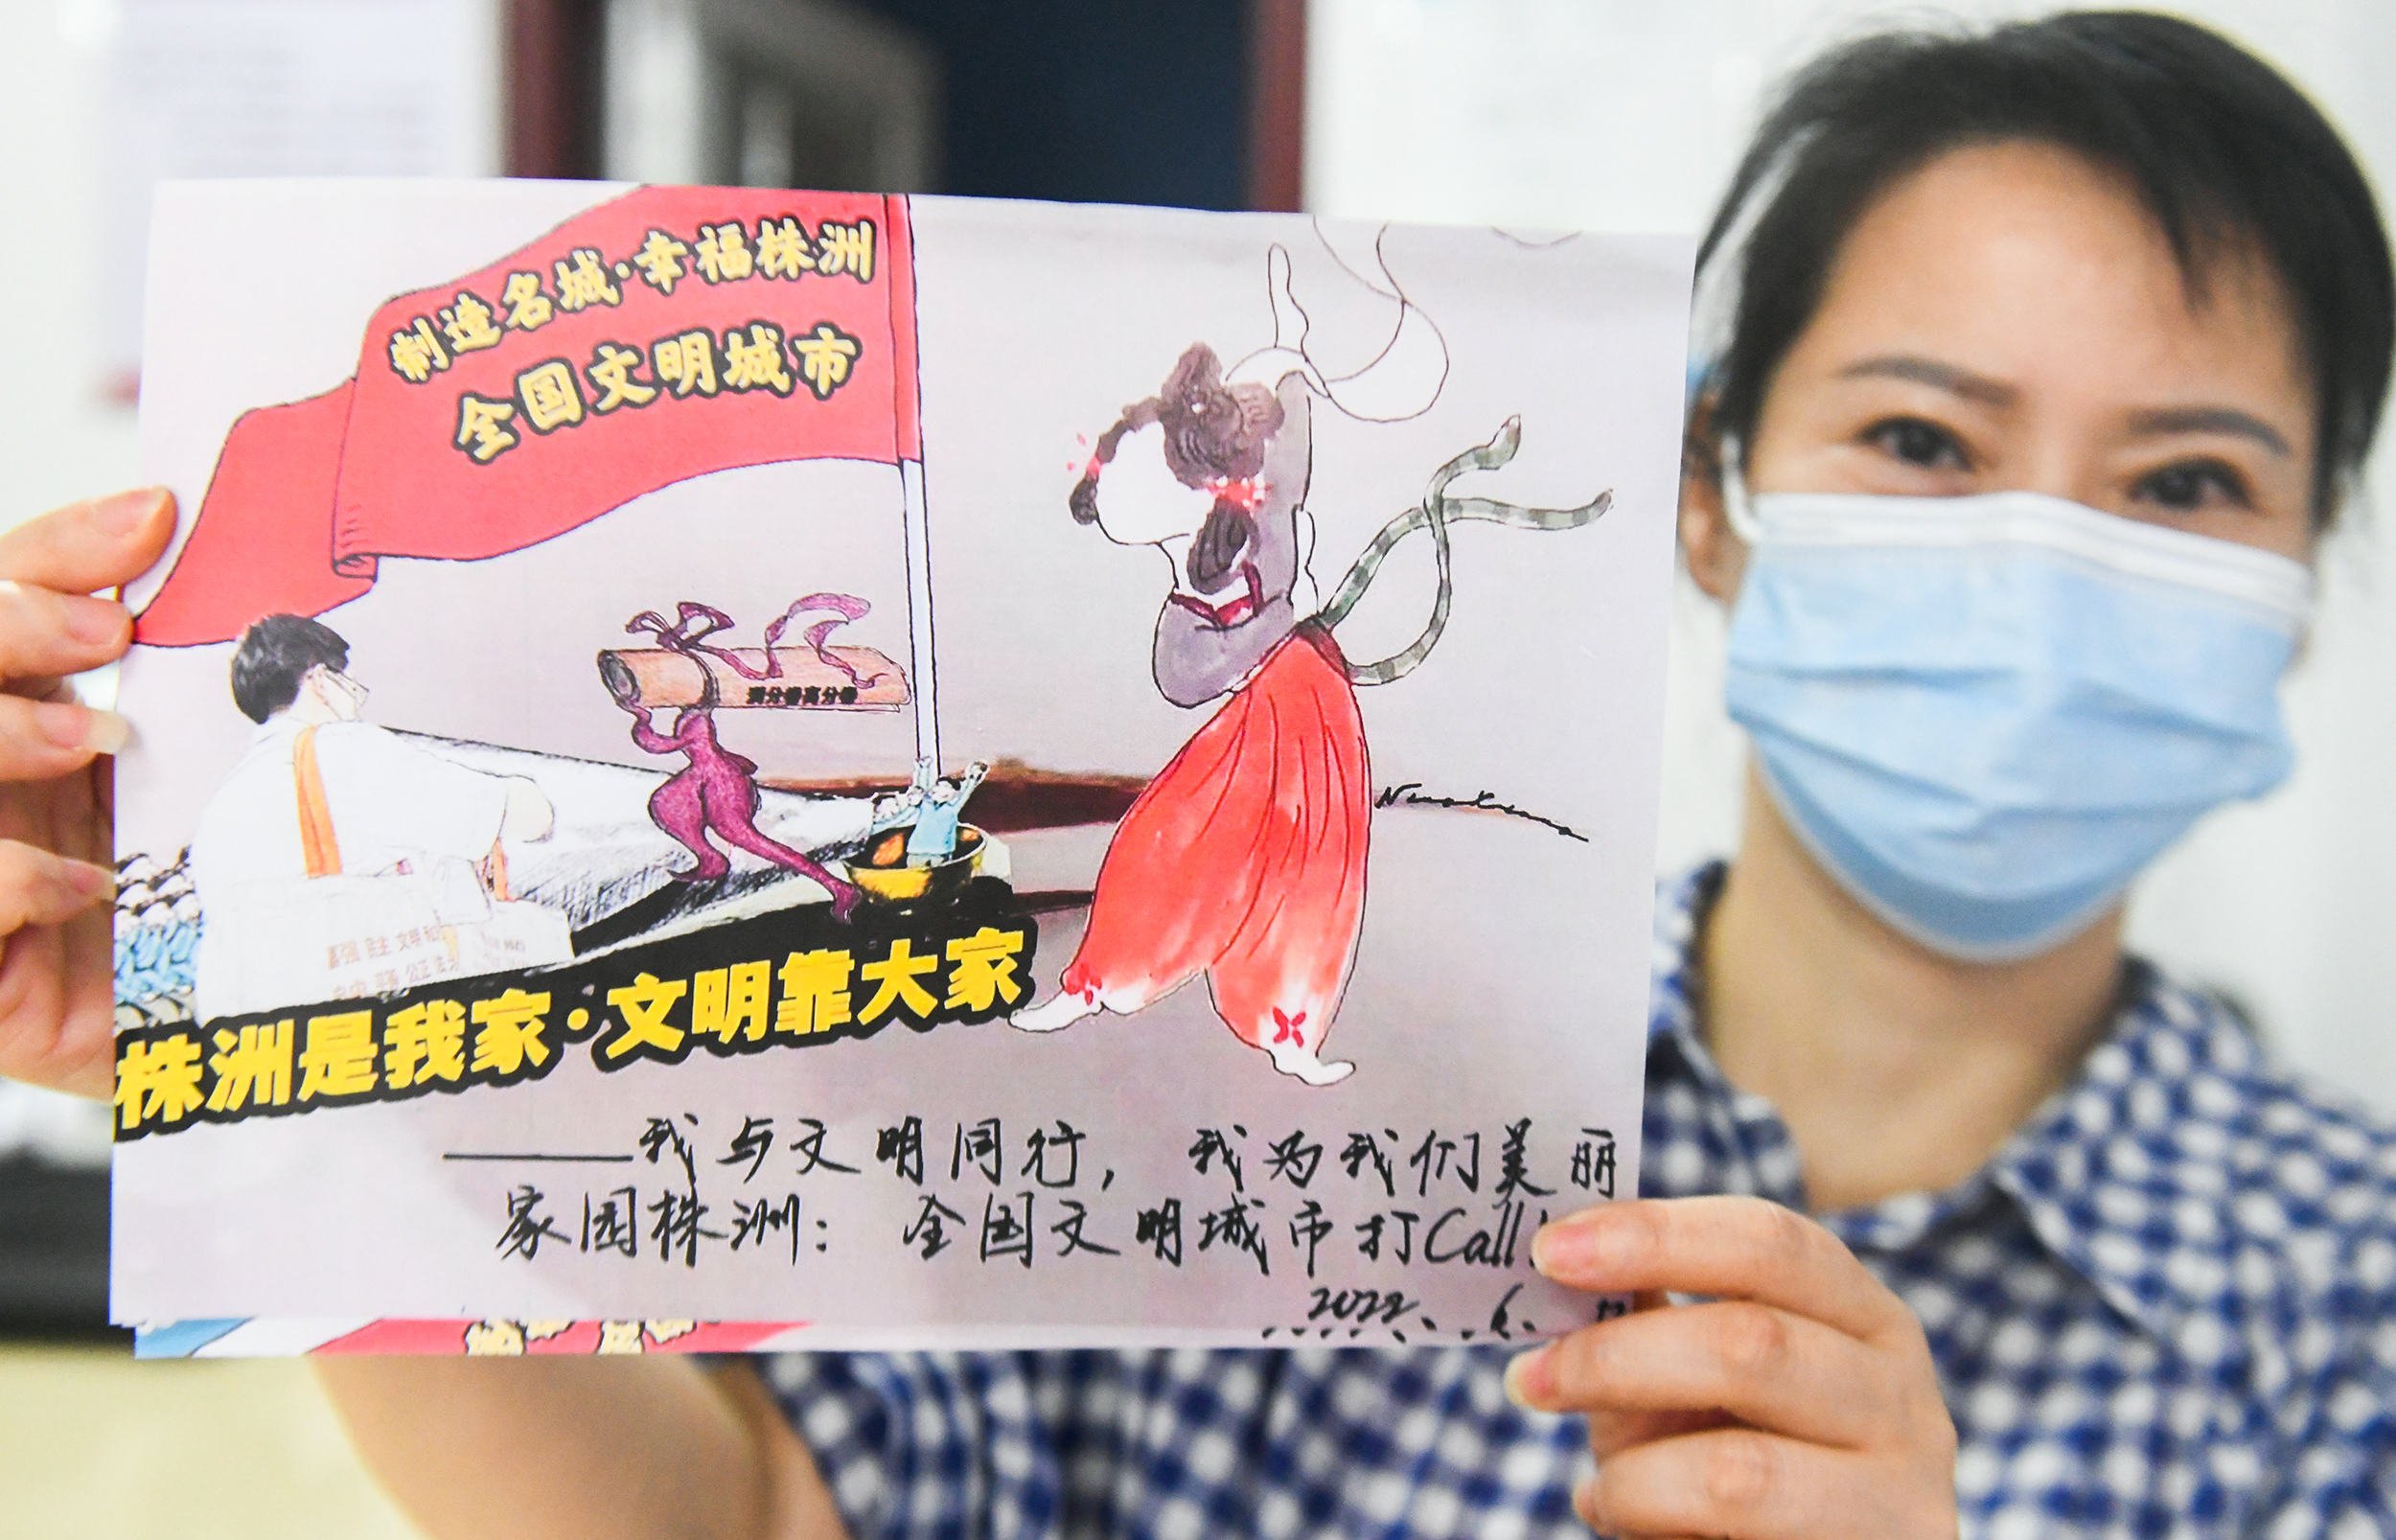 制造名城·幸福株洲
全国文明城市
株洲是我家·文明靠大家
——我与文明同行，我为我们美丽
家园株洲：全国文明城市打Call！
2022.6.